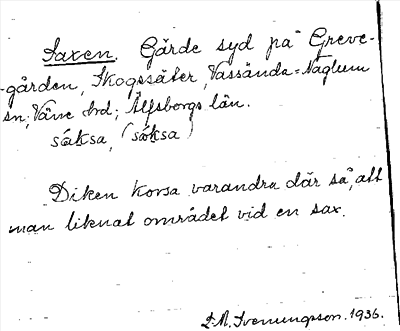 Saxen. Gärde syd på Greve-
-gården, Skogssäter, Vassända=Naglum
sn; Väne hrd; Älfsborgs län.
sáksa, (sóksa)
Diken korsa varandra där så, att
man liknat området vid en sax.
Svenungsson. 1936.